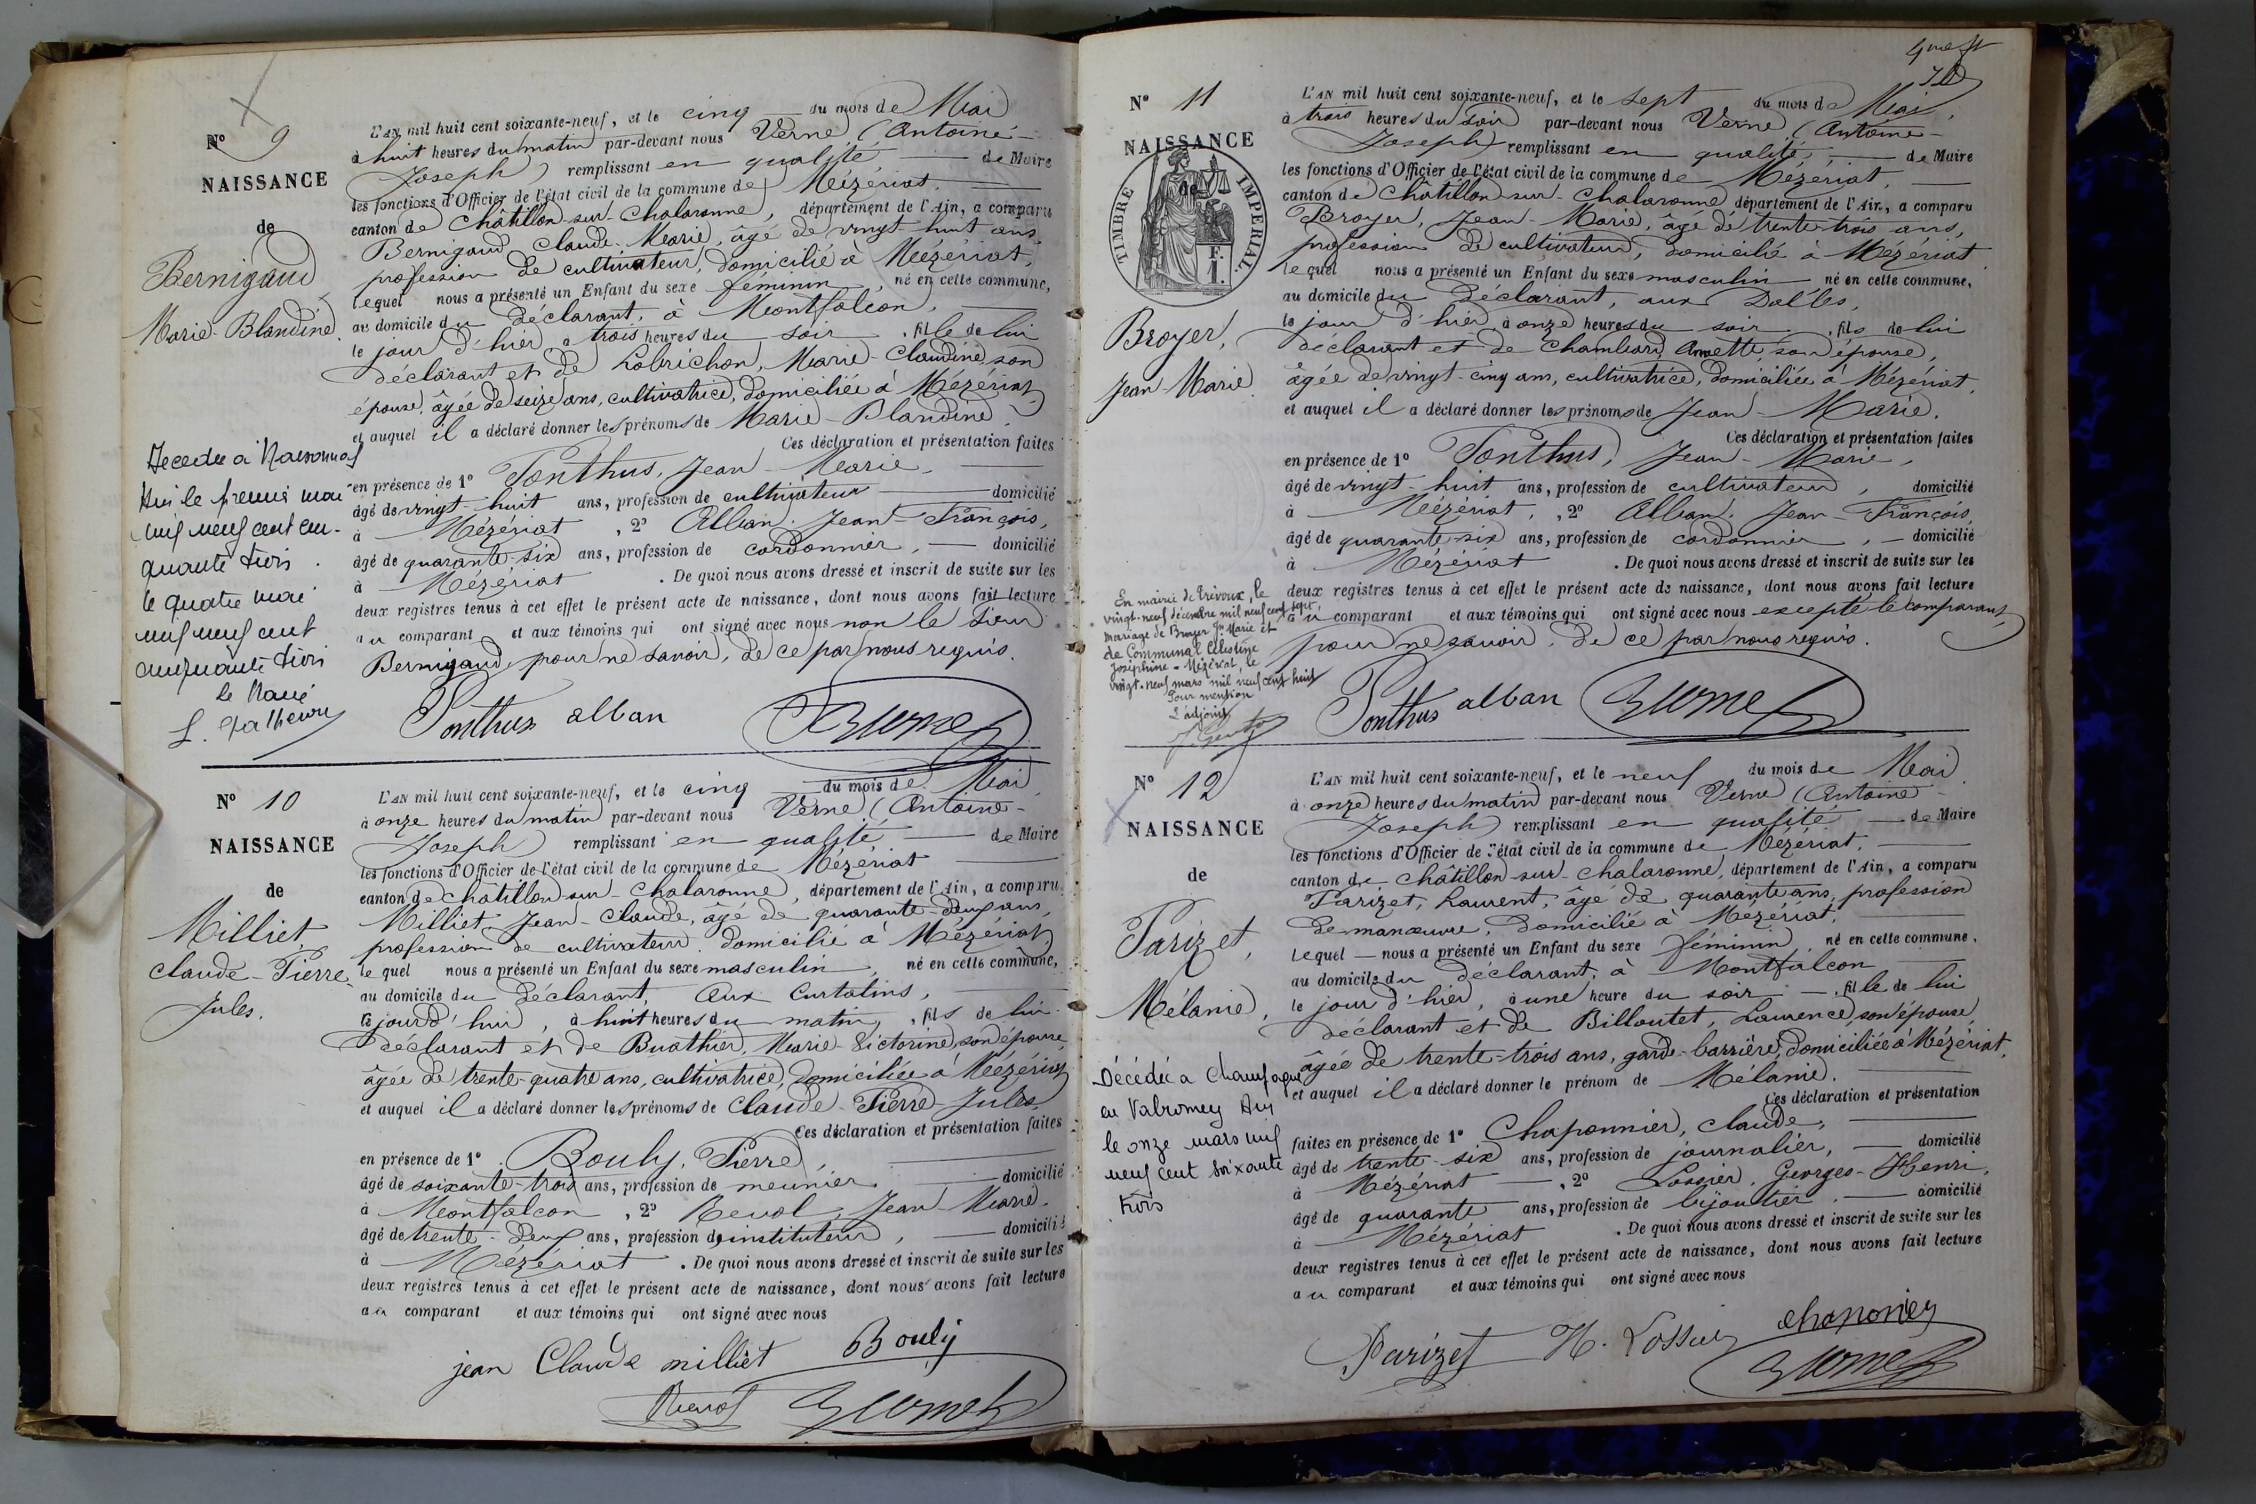 N° 9
NAISSANCE
de
Bernigaud
Marie-Blandine.
Décédée à
Ain le premier mai
mil neuf cent cin-
quante trois.
le quatre mai
mil neuf cent
cinquante trois
Le Maire
L'AN mil huit cent soixante-neuf, et le cinq du mois de Mai
à huit heures du matin par-devant nous Verne (Antoine-
Joseph) remplissant en qualité de Maire
les fonctions d'Officier de l'état civil de la commune de Mézériat.
canton de Châtillon-sur-Chalaronne, département de l'Ain, a comparu
Bernigaud Claude-Marie, âgé de vingt huit ans,
profession de cultivateur, domicilié à Mézériat,
lequel nous a présenté un Enfant du sexe féminin, né en cette commune,
au domicile du déclarant, à Montfalcon,
le jour d'hier à trois heures du soir, fille de lui
déclarant et de Labrichon, Marie-Claudine son
épouse, âgée de seize ans, cultivatrice, domiciliée à Mézériat,
et auquel il a déclaré donner les prénoms de Marie-Blandine.
Ces déclaration et présentation faites
en présence de 1° Ponthus, Jean-Marie,
âgé de vingt-huit ans, profession de cultivateur domicilié
à Mézériat, 2° Alban, Jean-François,
âgé de quarante-six ans, profession de cordonnier, domicilié
à Mézériat. De quoi nous avons dressé et inscrit de suite sur les
deux registres tenus à cet effet le présent acte de naissance, dont nous avons fait lecture
au comparant et aux témoins qui ont signé avec nous non le sieur
Bernigaud, pour ne savoir, de ce par nous requis.
Ponthus alban Verne
N° 10
NAISSANCE
de
Milliet
Claude-Pierre-
Jules.
L'AN mil huit cent soixante-neuf, et le cinq du mois de Mai,
à onze heures du matin par-devant nous Verne (Antoine-
Joseph) remplissant en qualité de Maire
les fonctions d'Officier de l'état civil de la commune de Mézériat
canton de Châtillon-sur-Chalaronne, département de l'Ain, a comparu
Milliet Jean-Claude, âgé de quarante-deux ans,
profession de cultivateur, domicilié à Mézériat,
lequel nous a présenté un Enfant du sexe masculin, né en cette commune,
au domicile du déclarant, aux Curtatins,
le jour d'hui, à huit heures du matin, fils de lui
déclarant et de Buathier, Marie-Victorine, son épouse,
âgée de trente-quatre ans, cultivatrice, domiciliée à Mézériat
et auquel il a déclaré donner les prénoms de Claude-Pierre-Jules.
Ces déclaration et présentation faites
en présence de 1° Bouly, Pierre,
âgé de soixante-trois ans, profession de meunier domicilié
à Montfalcon, 2° Revol, Jean-Marie,
âgé de trente-deux ans, profession d'instituteur, domicilié
à Mézériat. De quoi nous avons dressé et inscrit de suite sur les
deux registres tenus à cet effet le présent acte de naissance, dont nous avons fait lecture
au comparant et aux témoins qui ont signé avec nous
jean Claude milliet Bouly
Revol Verne
N° 11
NAISSANCE
de
TIMBRE IMPERIAL.
Broyer,
Jean-Marie.
En mairie de Trévoux, le
vingt-neuf décembre mil neuf cent sept,
mariage de Broyer Jn Marie et
de Communal Célestine
Joséphine - Mézériat, le
vingt-neuf mars mil neuf cent huit
Pour mention
L'adjoint
L'AN mil huit cent soixante-neuf, et le sept du mois de Mai,
à trois heures du soir par-devant nous Verne (Antoine-
Joseph) remplissant en qualité de Maire
les fonctions d'Officier de l'état civil de la commune de Mézériat,
canton de Châtillon-sur-Chalaronne département de l'Ain, a comparu
Broyer, Jean-Marie, âgé de trente-trois ans,
profession de cultivateur, domicilié à Mézériat
lequel nous a présenté un Enfant du sexe masculin né en cette commune,
au domicile du déclarant, aux Dalles,
le jour d'hier, à onze heures du soir, fils de lui
déclarant et de Chambard Annette, son épouse,
âgée de vingt-cinq ans, cultivatrice, domiciliée à Mézériat,
et auquel il a déclaré donner les prénoms de Jean-Marie.
Ces déclaration et présentation faites
en présence de 1° Ponthus, Jean-Marie,
âgé de vingt-huit ans, profession de cultivateur, domicilié
à Mézériat, 2° Alban, Jean-François,
âgé de quarante-six ans, profession de cordonnier, domicilié
à Mézériat. De quoi nous avons dressé et inscrit de suite sur les
deux registres tenus à cet effet le présent acte de naissance, dont nous avons fait lecture
au comparant et aux témoins qui ont signé avec nous excepté le comparant,
pour ne savoir, de ce par nous requis.
Ponthus alban Verne
N° 12
NAISSANCE
de
Parizet,
Mélanie,
Décédée à Champagne
en Valromey Ain
le onze mars mil
neuf cent soixante
trois
L'AN mil huit cent soixante-neuf, et le neuf du mois de Mai
à onze heures du matin par-devant nous Verne (Antoine-
Joseph) remplissant en qualité de Maire
les fonctions d'Officier de l'état civil de la commune de Mézériat,
canton de Châtillon-sur-Chalaronne, département de l'Ain, a comparu
Parizet, Laurent, âgé de quarante ans, profession
de manœuvre, domicilié à Mézériat,
Lequel nous a présenté un Enfant du sexe féminin, né en cette commune,
au domicile du déclarant, à Montfalcon
le jour d'hier, à une heure du soir, fille de lui
déclarant et de Billoutet, Laurence, son épouse
âgée de trente-trois ans, garde-barrière, domiciliée à Mézériat,
et auquel il a déclaré donner le prénom de Mélanie.
Ces déclaration et présentation
faites en présence de 1° Chaponnier, Claude,
âgé de trente-six ans, profession de journalier, domicilié
à Mézériat, 2° Lossier, Georges-Henri,
âgé de quarante ans, profession de bijoutier, domicilié
à Mézériat. De quoi nous avons dressé et inscrit de suite sur les
deux registres tenus à cet effet le présent acte de naissance, dont nous avons fait lecture
au comparant et aux témoins qui ont signé avec nous
Parizet H. Lossier chaponier
Verne